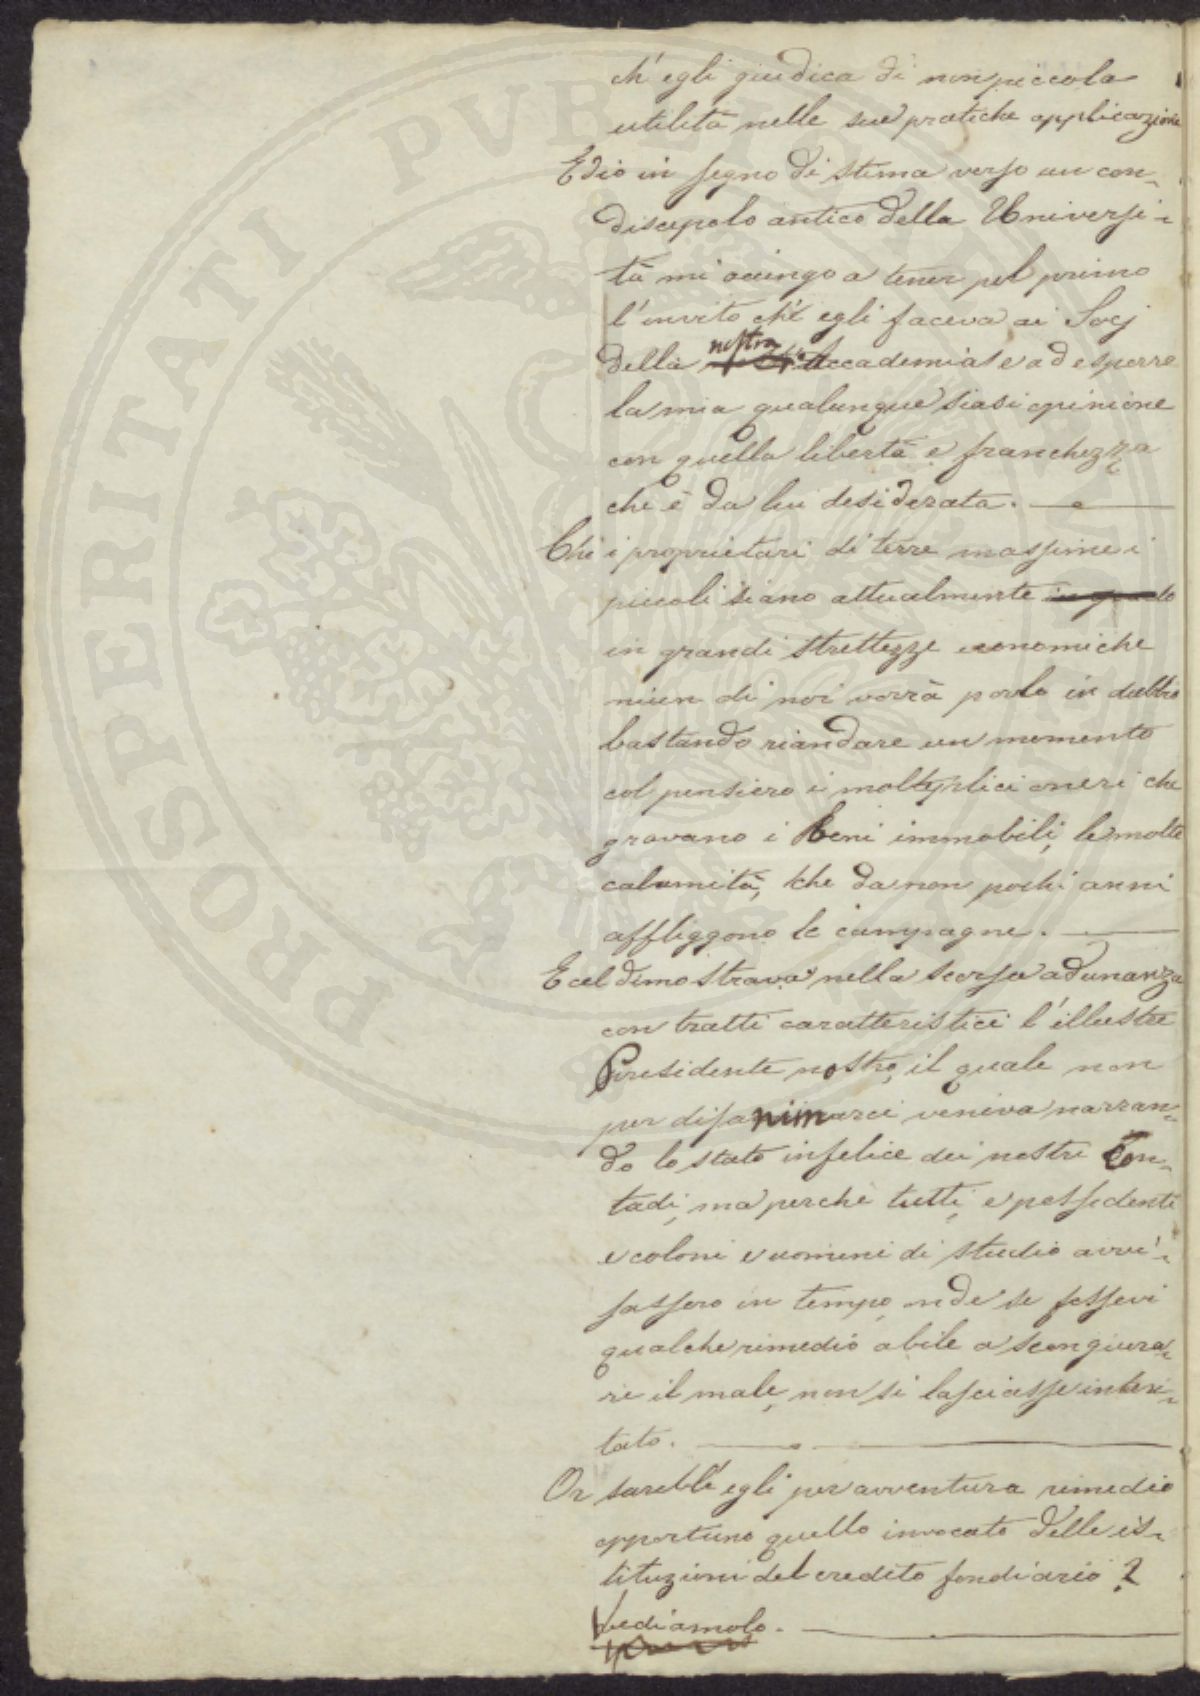 ch'egli giudica di non piccola
utilità nelle sue pratiche applicazione
Ed io in segno di stima verso un con-
discepolo antico della Universi-
tà mi accingo a tener pel primo
l'invito ch'è egli faceva ai Socj
della nostra Accademia e ad esporre
la mia qualunque siasi opinione
con quella libertà e franchezza
che è da lui desiderata.
Che i proprietari di terre massime i
piccoli siano attualmente
in grandi strettezze economiche
niun di noi vorrà porlo in dubbio
bastando riandare un momento
col pensiero i molteplici oneri che
gravano i beni immobili, le molte
calamità, che da non pochi anni
affliggono le campagne.
E cel dimostrava nella scorsa adunanza
con tratti caratteristici l'illustre
Presidente nostro, il quale non
per disanimarci veniva narran-
do lo stato infelice dei nostri Con-
tadi, ma perchè tutti, e possidenti
e coloni e uomini di studio avvi-
sassero in tempo onde se fossevi
qualche rimedio abile a scongiura-
re il male, non si lasciasse inten-
tato.
Or sarebb'egli per avventura rimedio
opportuno quello invocato delle is-
tituzioni del credito fondiario?
Vediamolo.
PROSPERITATI PVBLICAE